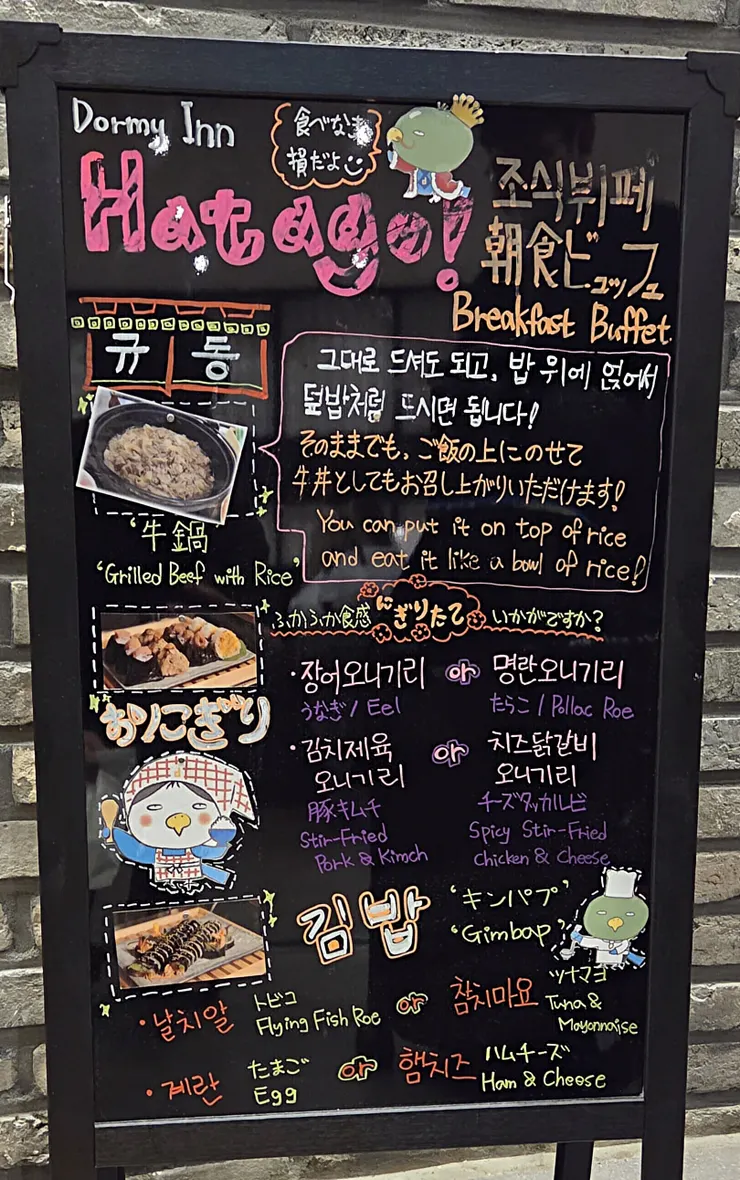 Dormy Inn
食べなきゃ
損だよ
Hatago!
조식뷔페
朝食ビュッフェ
Breakfast Buffet
규동
그대로 드셔도 되고, 밥 위에 얹어서
덮밥처럼 드시면 됩니다!
そのままでも、ご飯の上にのせて
牛丼としてもお召し上がりいただけます!
You can put it on top of rice
and eat it like a bowl of rice!
'牛鍋
'Grilled Beef with Rice'
ふかふか食感 にぎりたて いかがですか?
おにぎり
·장어오니기리 or 명란오니기리
うなぎ / Eel たらこ / Pollac Roe
·김치제육 or 치즈닭갈비
오니기리 오니기리
豚キムチ チーズタッカルビ
Stir-Fried Spicy Stir-Fried
Pork & Kimch Chicken & Cheese
김밥 'キンパプ'
'Gimbap'
·날치알 トビコ or 참치마요 ツナマヨ
Flying Fish Roe Tuna &
Mayonnaise
·계란 たまご or 햄치즈 ハムチーズ
Egg Ham & Cheese